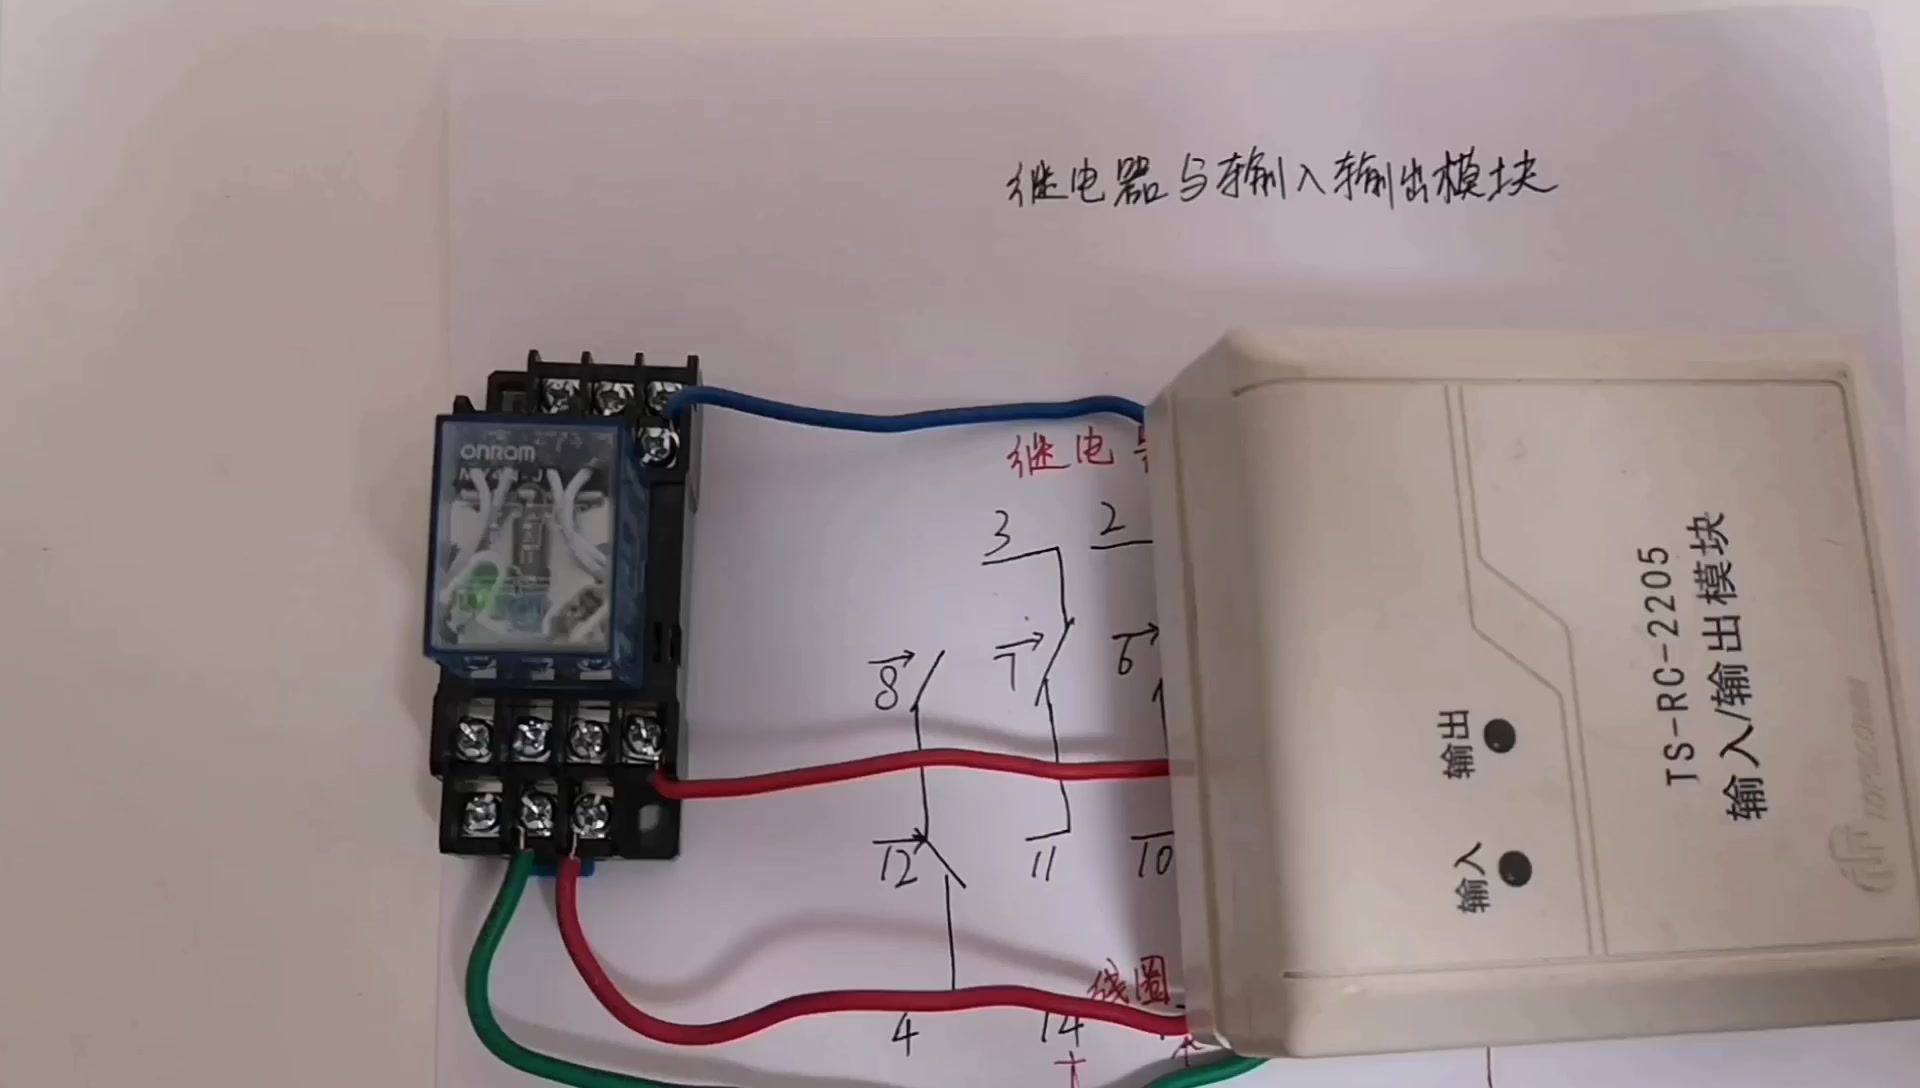 继电器与输入输出模块
onrom
MY4N-J
继电
3
2
8
7
6
12
11
10
线圈
4
14
+
TS-RC-2205
输入/输出模块
输出
输入